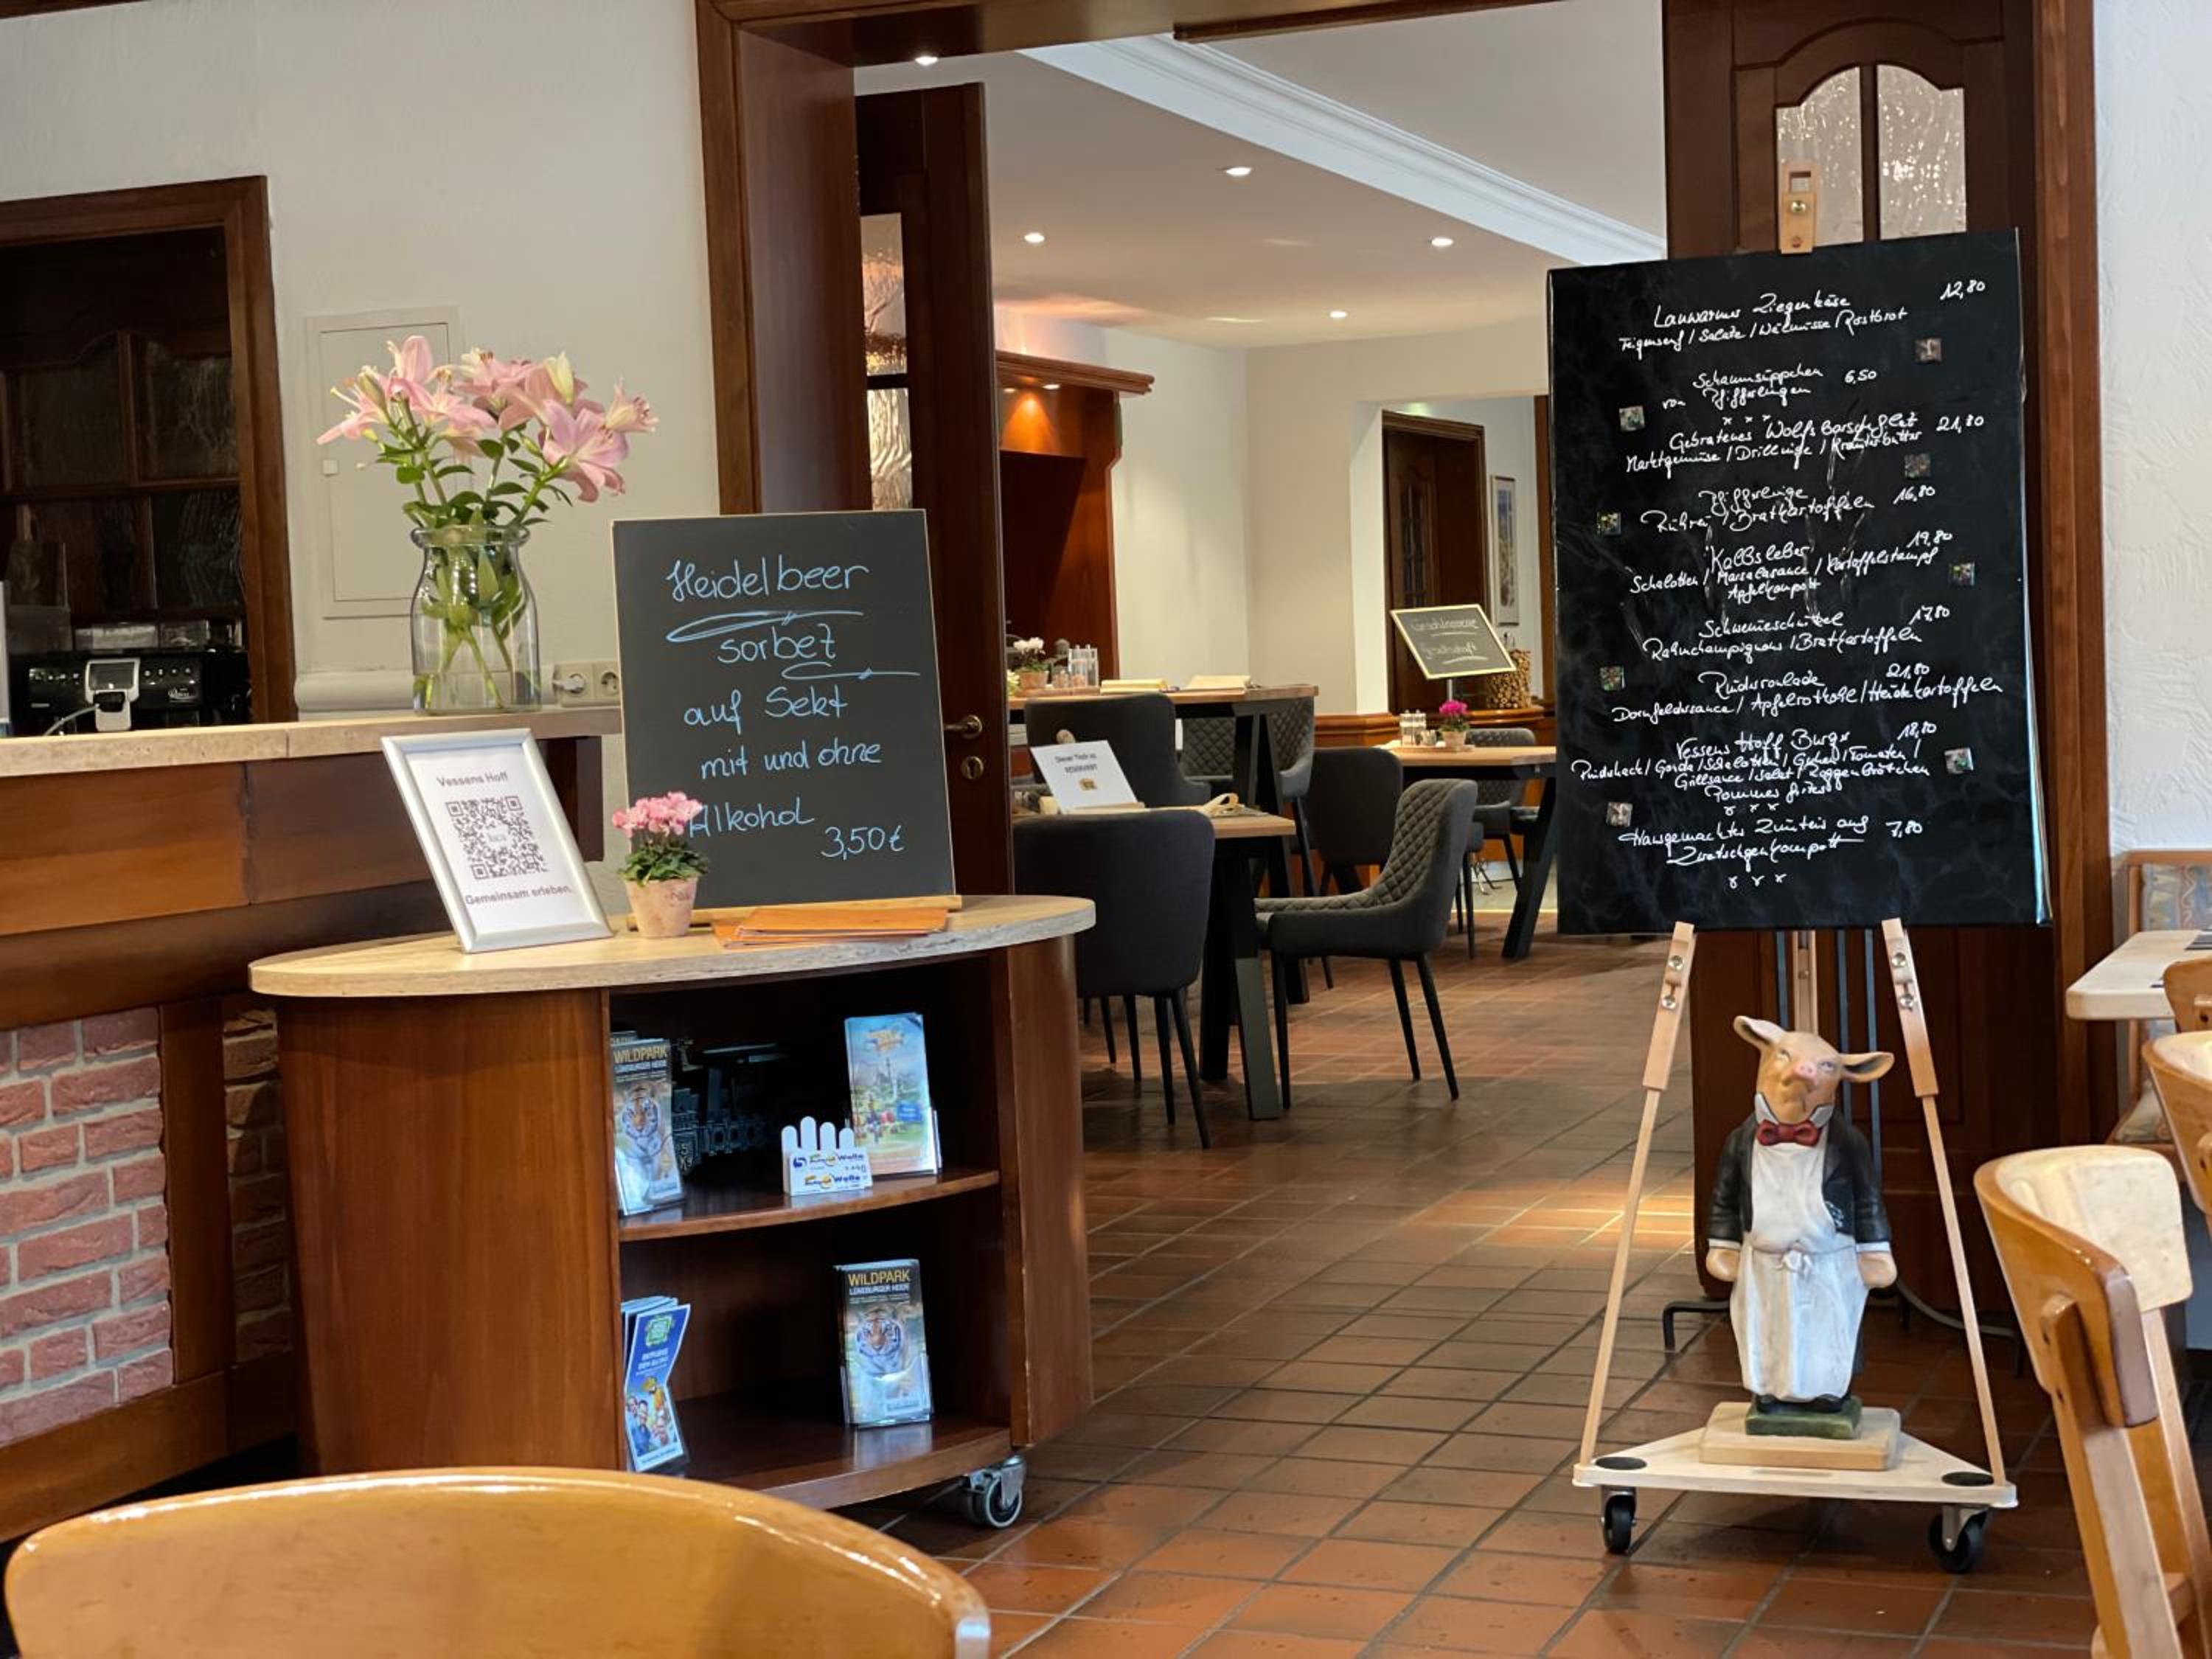 Heidelbeer
sorbet
auf Sekt
mit und ohne
Alkohol
3,50 €
Vessens Hoff
Gemeinsam erleben.
Lauwarmer Ziegenkäse 12,80
Feigensenf / Salate / Walnüsse / Röstbrot
Schaumsüppchen 6,50
von Pfifferlingen
x x x
Gebratenes Wolfsbarschfilet 21,80
Marktgemüse / Drillinge / Kräuterbutter
Pfifferlinge 16,80
Rührei / Bratkartoffeln
Kalbsleber 19,80
Schalotten / Marsalasauce / Kartoffelstampf
Apfelkompott
Schweineschnitzel 17,80
Rahmchampignons / Bratkartoffeln
Rinderroulade 21,80
Dornfeldersauce / Apfelrotkohl / Heidekartoffeln
Vessens Hoff Burger 18,80
Rindshack / Gouda / Schalotten / Gurken / Tomaten /
Grillsauce / Salat / Roggenbrötchen
Pommes frites
x x x
Hausgemachtes Zimteis auf 7,80
Zwetschgenkompott
x x x
Geschlossene
Gesellschaft
Dieser Tisch ist
RESERVIERT
WILDPARK
LÜNEBURGER HEIDE
Welle
Welle
WILDPARK
LÜNEBURGER HEIDE